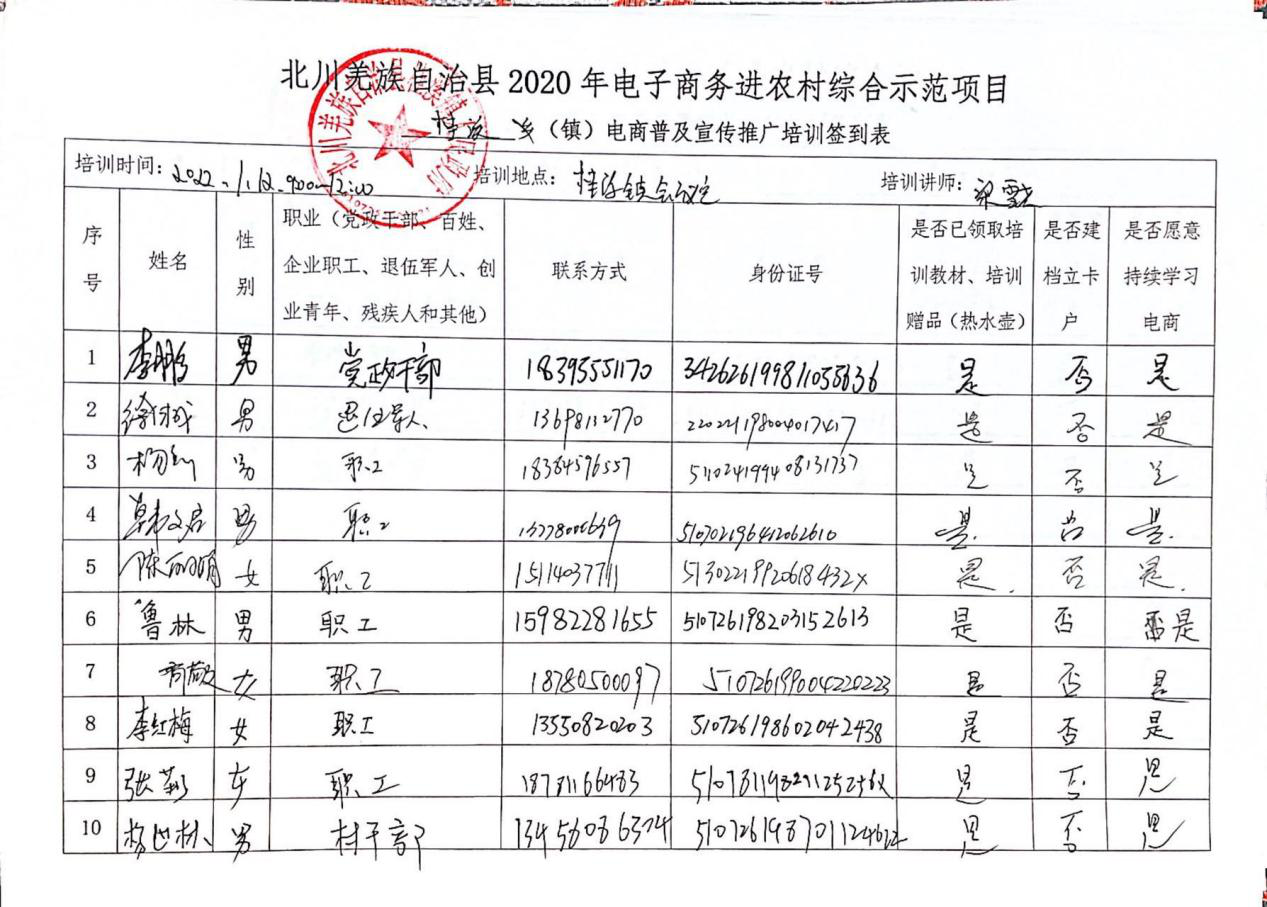 北川羌族自治县2020年电子商务进农村综合示范项目
乡（镇）电商普及宣传推广培训签到表
培训时间：2022.1.12.9:00-12:00 培训地点：镇会议室 培训讲师：梁
序号 姓名 性别 职业（党政干部、百姓、企业职工、退伍军人、创业青年、残疾人和其他） 联系方式 身份证号 是否已领取培训教材、培训赠品（热水壶） 是否建档立卡户 是否愿意持续学习电商
1 李鹏 男 党政干部 18395551170 是 否 是
2 男 退伍军人 13698112770 是 否 是
3 杨 男 职工 18384596557 511024199408131737 是 否 是
4 韩文启 男 职工 510702196412062610 是 否 是
5 陈 女 职工 15114037711 51302219920618432X 是 否 是
6 鲁林 男 职工 15982281655 510726198203152613 是 否 是
7 女 职工 18780500097 510726199004220223 是 否 是
8 李红梅 女 职工 13550820203 510726198602042438 是 否 是
9 张 女 职工 18781166483 是 否 是
10 杨 男 村干部 13458086374 是 否 是